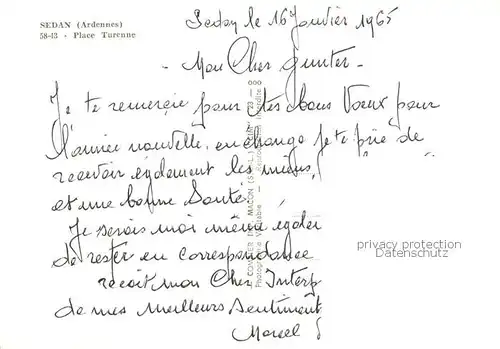 SEDAN (Ardennes)
58-43 - Place Turenne
Sedan le 16 Janvier 1965
- Mon Cher Gunter -
Je te remercie pour tes bons Voeux pour
l'année nouvelle, en échange je te prie de
recevoir également les miens,
et une bonne Santé
Je serais moi même
de rester en correspondance
reçoit mon Cher
de mes meilleurs sentiments
Marcel
MACON
privacy protection
Datenschutz